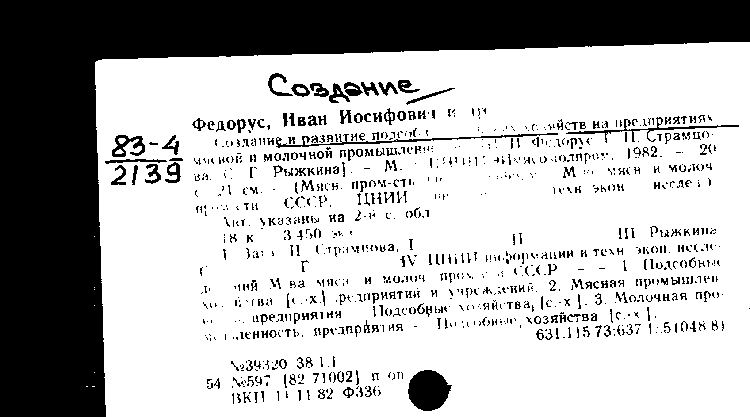 Создание
Федорус, Иван Иосифович и др
83-4
2139
Создание и развитие подсобных хозяйств на предприятиях
мясной и молочной промышленности И. И. Федорус, Г. П. Страмцо-
ва, С. Г. Рыжкина]. – М. ЦНИИТЭИмясомолпром, 1982. – 20
с. 21 см. – (Мясн. пром-сть М-во мясн и молоч
СССР, ЦНИИ техн экон исслед)
Авт. указаны на 2-й с. обл
18 к 3 450 экз
I Загл II Страмцова, Г П III Рыжкина
С Г IV ЦНИИ информации и техн экон. иссле-
дований М-ва мясн и молоч пром-сти СССР – – 1 Подсобные
хозяйства [с.-х.] предприятий и учреждений. 2. Мясная промышлен
ность, предприятия – Подсобные хозяйства, [с.-х ]. 3. Молочная про-
мышленность, предприятия – Подсобные хозяйства [с.-х ].
№39320 38 1.1
54 №597 [82 71002] п оп
ВКП 11 11 82 Ф336